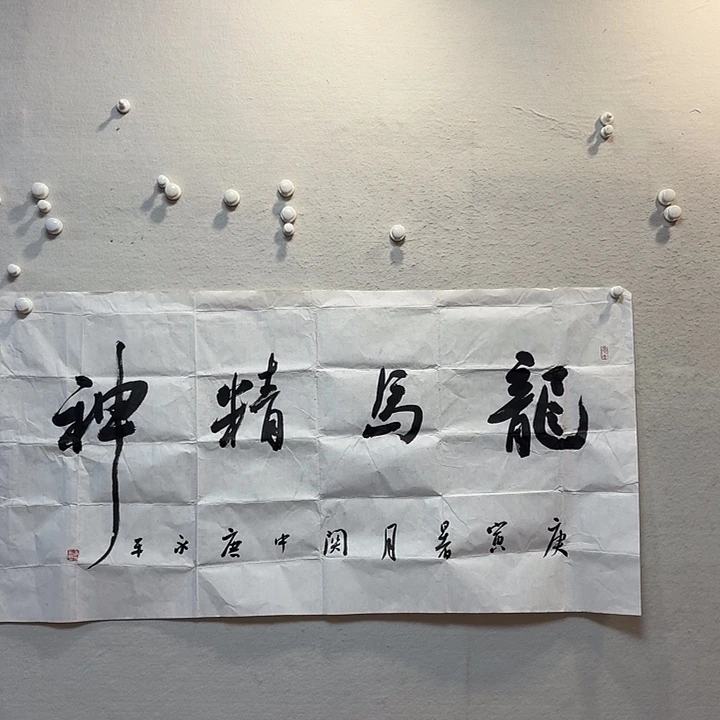 龍馬精神
庚寅暑月関中庶永平